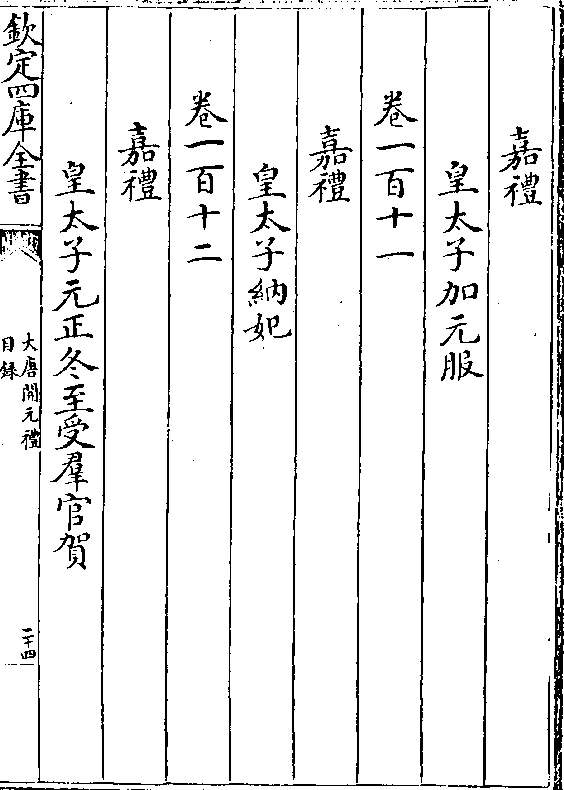 嘉禮
皇太子加元服
卷一百十一
嘉禮
皇太子納妃
卷一百十二
嘉禮
皇太子元正冬至受羣官賀
欽定四庫全書
大唐開元禮
目錄
二十四